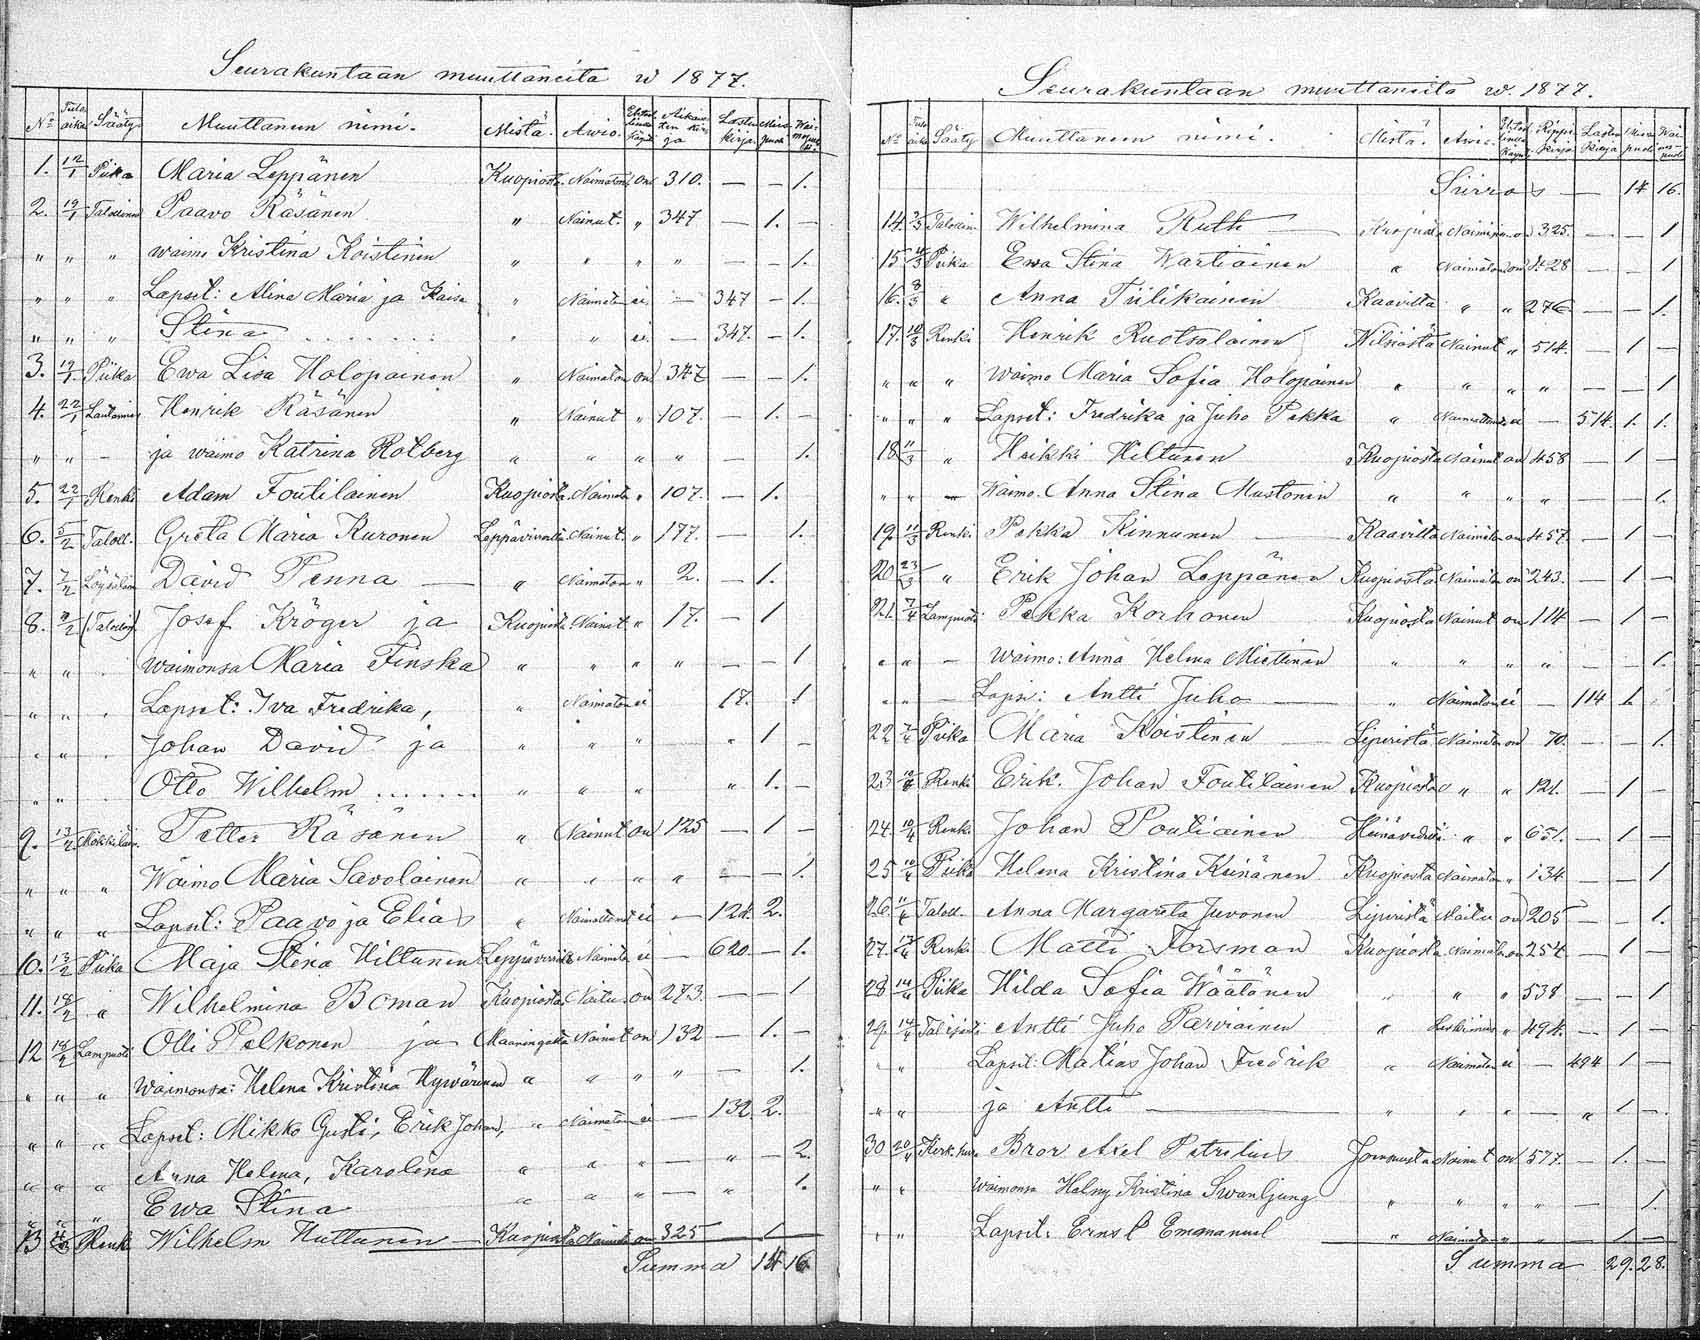 Seurakuntaan muuttaneita w 1877.
No Tulo aika Sääty Muuttanun nimi. Mistä. Awio. Lasten kirja. Mies puoli
1. 12/1 Piika Maria Leppänen Kuopiosta Naimaton on 310. — — 1.
2. 19/1 Talollinen Paavo Räsänen " Nainut. " 347 — 1. —
" " " waimo Kristina Koistinen " " " " — — 1.
" " " Lapset: Alina Maria ja Kaisa " Naimaton ei — 347 — 1.
" " " Stina " " ei — 347. — 1.
3. 19/1 Piika Ewa Lisa Holopainen " Naimaton on 347 — — 1.
4. 22/1 Henrik Räsänen " Nainut " 107. — 1. —
" " — ja waimo Katrina Rotberg " " " " — 1.
5. 22/1 Renki Adam Foutilainen Kuopiosta Naimaton " 107. — 1.
6. 5/2 Taloll. Greta Maria Kuronen Leppävirralta Nainut. " 177. — 1.
7. 7/2 David Penna — " Naimaton " 2. — 1.
8. Josef Kröger ja Kuopiosta Nainut " 17. — 1
" " . waimonsa Maria Finska " " " " — — 1
" " . Lapset: Iva Fredrika, " Naimaton ei 17. 1
. " . Johan David ja " " " " 1 —
" " . Otto Wilhelm " " " " 1. —
9. 13/2 Petter Räsänen " Nainut on 125 — 1 —
" " " Waimo Maria Savolainen " " " " — 1.
" " " Lapset: Paavo ja Elias " ei — 124. 2.
10. 13/2 Piika Maja Stina Hiltunen Leppävirralta Naimaton ei — 620. — 1.
11. 18/2 " Wilhelmina Boman Kuopiosta Naitu on 273. — — 1
12 18/2 Lampuoti Olli Pelkonen ja Maaningalta Nainut on 132 — 1. —
" " " waimonsa: Helena Kristina Hywärinen " " " " — 1.
" " " Lapset: Mikko Gusti, Erik Johan, " Naimaton ei — 132. 2.
" " " Anna Helena, Karolina " " " — " — 2.
" Ewa Stina " " " — " 1.
13 Renki Wilhelm Huttunen Kuopiosta Naimaton on 325 — 1 —
Summa 14 16
Seurakuntaan muuttaneita w. 1877.
No Tulo aika Sääty Muuttanun nimi. Mistä. Awio. Rippi kirja Lasten kirja Mies puoli
Siirros — 14 16.
14. Wilhelmina Ruth — Kuopiosta on 325. — — 1
15 4/3 Piika Ewa Stina Wartiainen " Naimaton on 428 — — 1
16. 8/3 " Anna Tiilikainen Kaavilta " " 276. — — 1.
17. 10/3 Renki Henrik Ruotsalainen Nilsiästä Nainut " 514. — 1 —
" " " waimo Maria Sofia Holopainen " " " " — — 1
" " " Lapset: Fredrika ja Juho Pekka " ei — 514. 1. 1.
18 11/3 " Heikki Hiltunen Kuopiosta Nainut on 458 — 1 —
" " — Waimo. Anna Stina Mustonin " " " " — — 1.
19. 11/3 Renki Pekka Kinnunen — Kaavilta Naimaton on 457. — 1 —
20 23/3 " Erik Johan Leppänen Kuopiosta Naimaton on 243. — 1 —
21. 7/4 Lampuoti Pekka Korhonen Kuopiosta Nainut on 114 — 1 —
" " — waimo: Anna Helena Miettinen " " " " — — 1.
" " — Lapsi: Antti Juho — " Naimaton ei — 114 1.
22 7/4 Piika Maria Koistinen — Liperistä Naimaton on 70. — — 1.
23 Renki Erik. Johan Foutilainen Kuopiosta " " 121. — 1 —
24. 10/4 Renki Johan Poutiainen " " 651. — 1 —
25 Piika Helena Kristina Keinänen Kuopiosta Naimaton " 134 — — 1
26. 11/4 Taloll. Anna Margareta Juvonen Liperistä Naitu on 205 — — 1.
27. Renki Matti Forsman Kuopiosta Naimaton on 254. — 1 —
28 14/4 Piika Hilda Sofia Wäätänen " " " 538 — — 1
29. 14/4 Antti Juho Parviainen " Leskimies " 494. — 1 —
" " Lapset: Matias Johan Fredrik " Naimaton ei — 494 1 —
" " ja Antti — " " " — " 1 —
30 20/4 Bror Axel Petrelius Nainut on 577. — 1. —
" " waimonsa Halmy Kristina Swanljung " " " " — 1.
" " Lapset: Ernst Emmanuel " Naimaton " " — 1. —
Summa 29. 28.